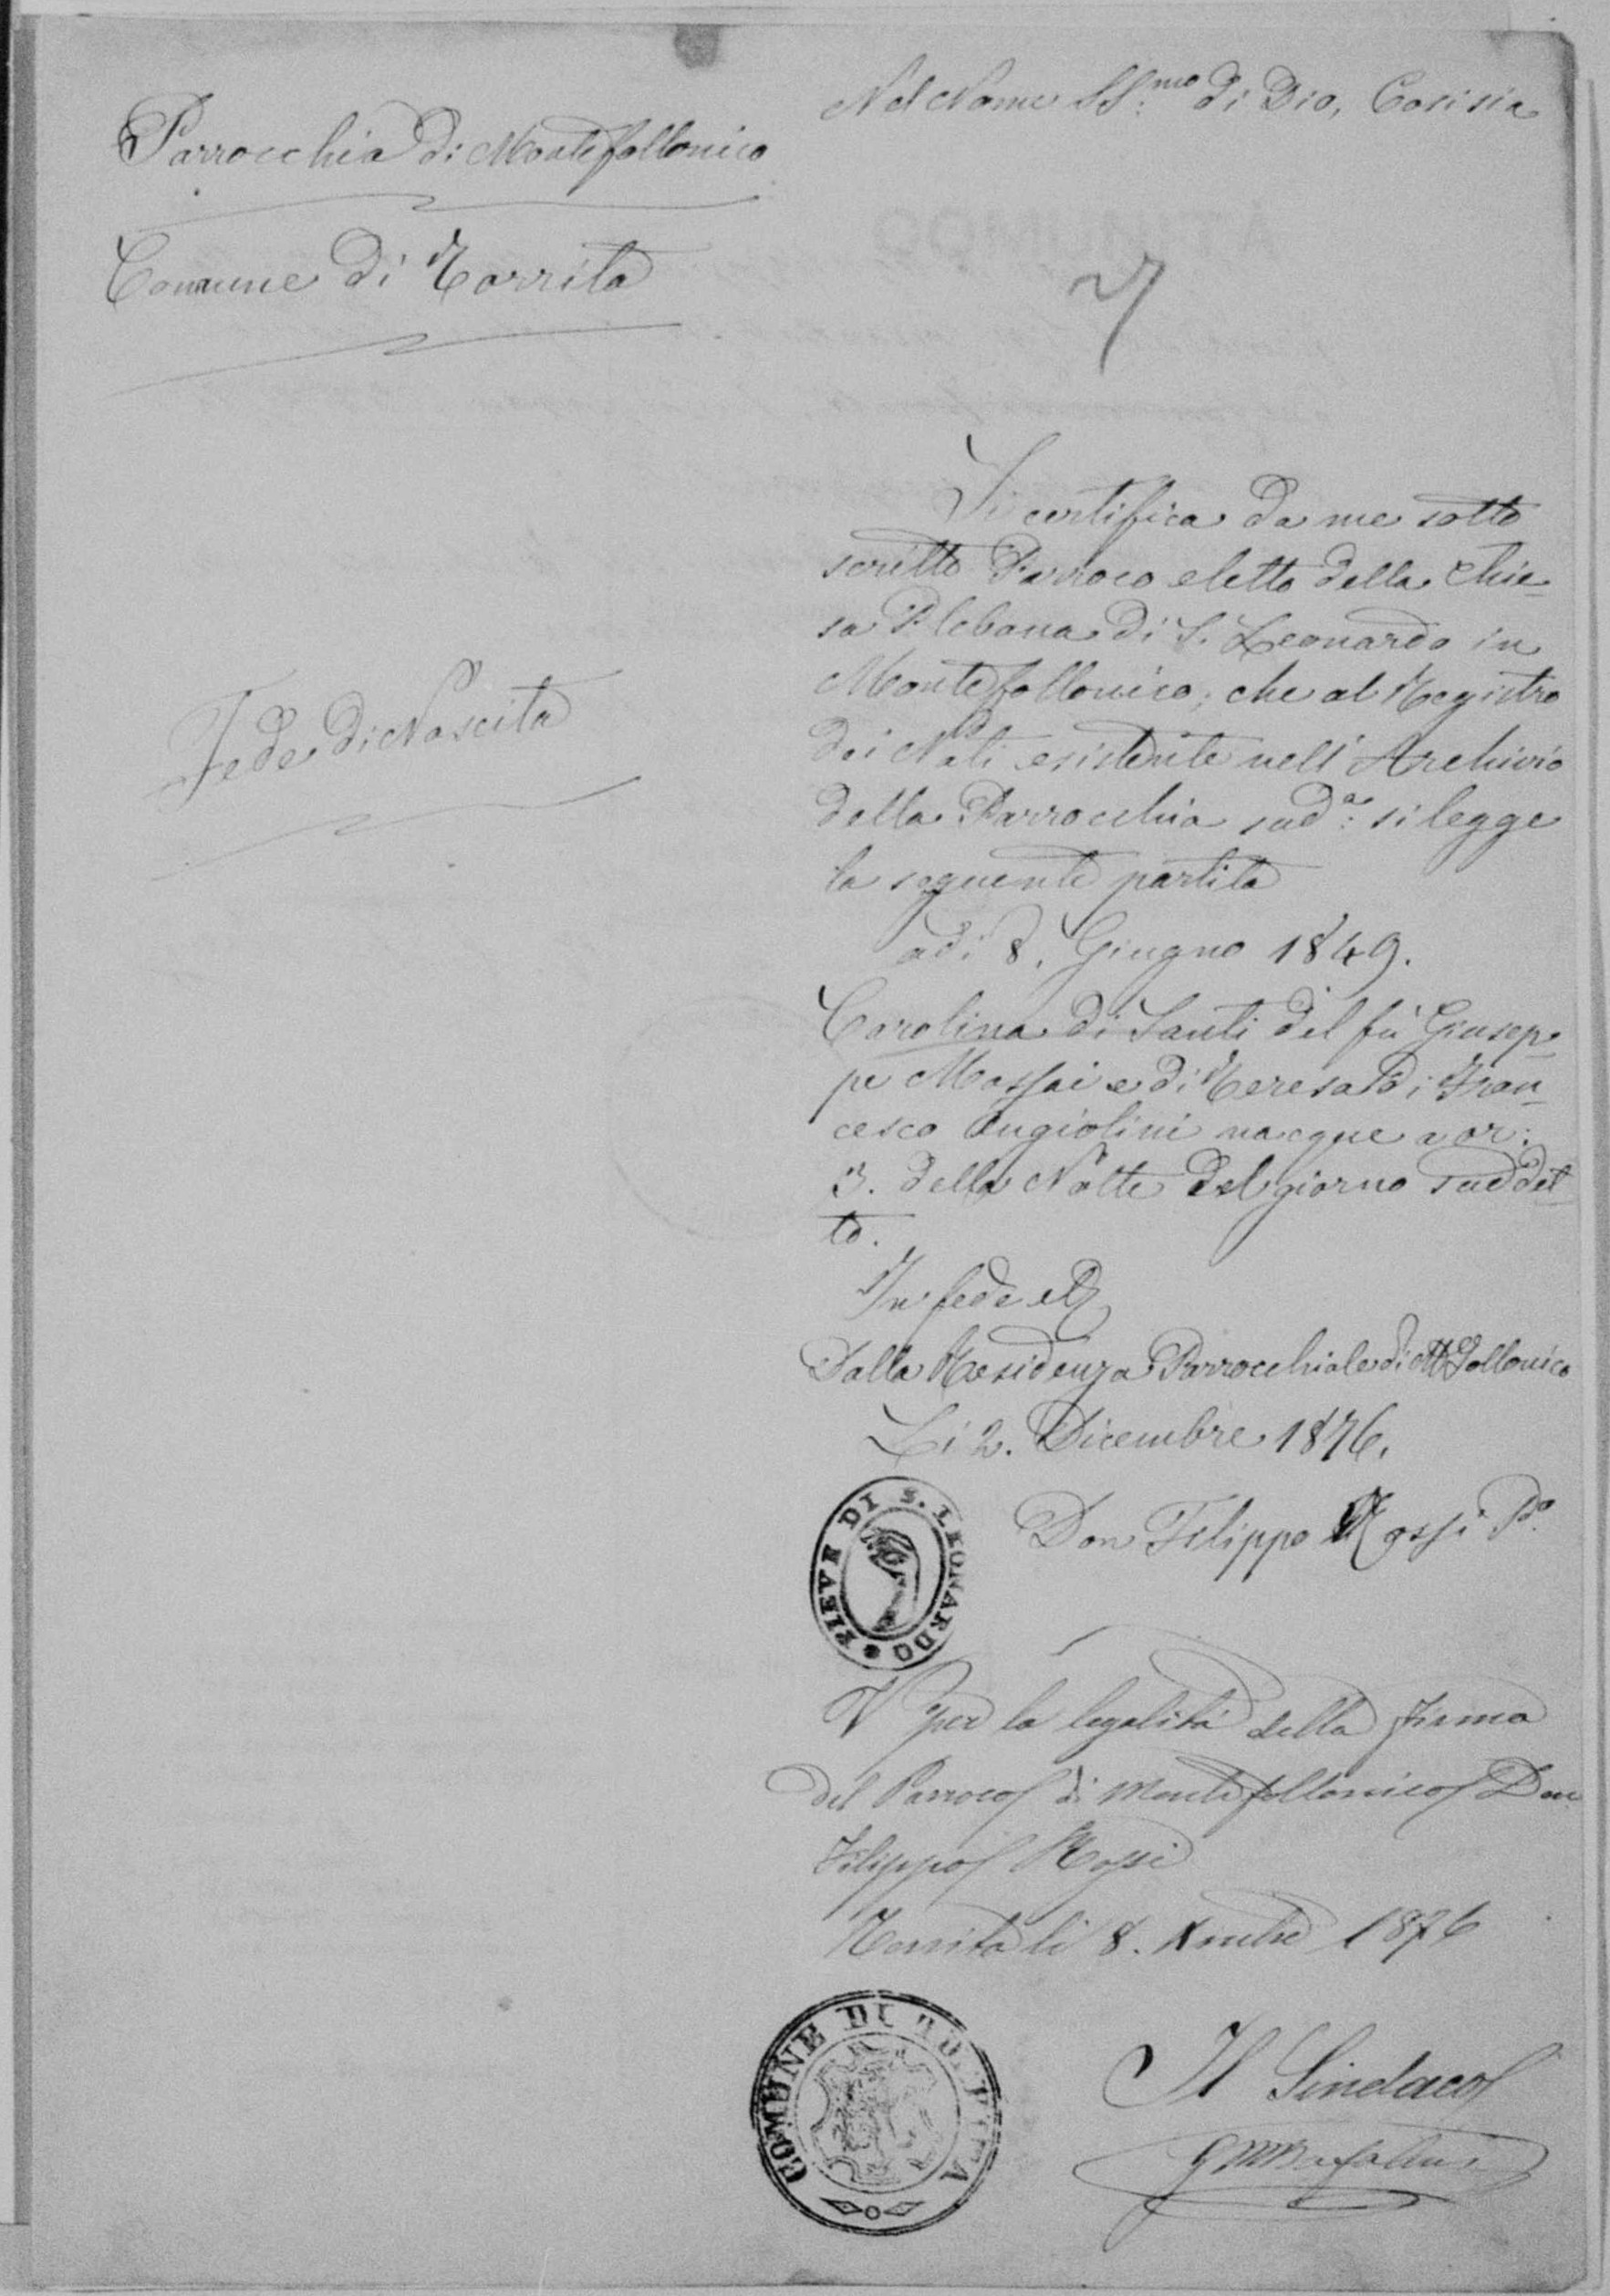 Nel Nome SS:mo di Dio, Così sia
Parrocchia di Montefollonico
Comune di Torrita
7
Si certifica da me sotto
scritto Parroco eletto della Chie-
sa Plebana di S. Leonardo in
Montefollonico, che al Registro
dei Nati esistente nell'Archivio
della Parrocchia sud:a si legge
la seguente partita
Fede di Nascita
adì 8. Giugno 1849.
Carolina di Santi del fù Giusep-
pe Massai e di Teresa di Fran-
cesco Angiolini nacque a or:
3. della Notte del giorno suddet-
to.
In fede
Dalla Residenza Parrocchiale di M Follonico
Li 2. Dicembre 1876.
Don Filippo Rossi P.o
PIEVE DI S. LEONARDO
V per la legalità della firma
del Parroco di Montefollonico Don
Filippo Rossi
Torrita li 8. Xmbre 1876
COMUNE DI TORRITA
Il Sindaco